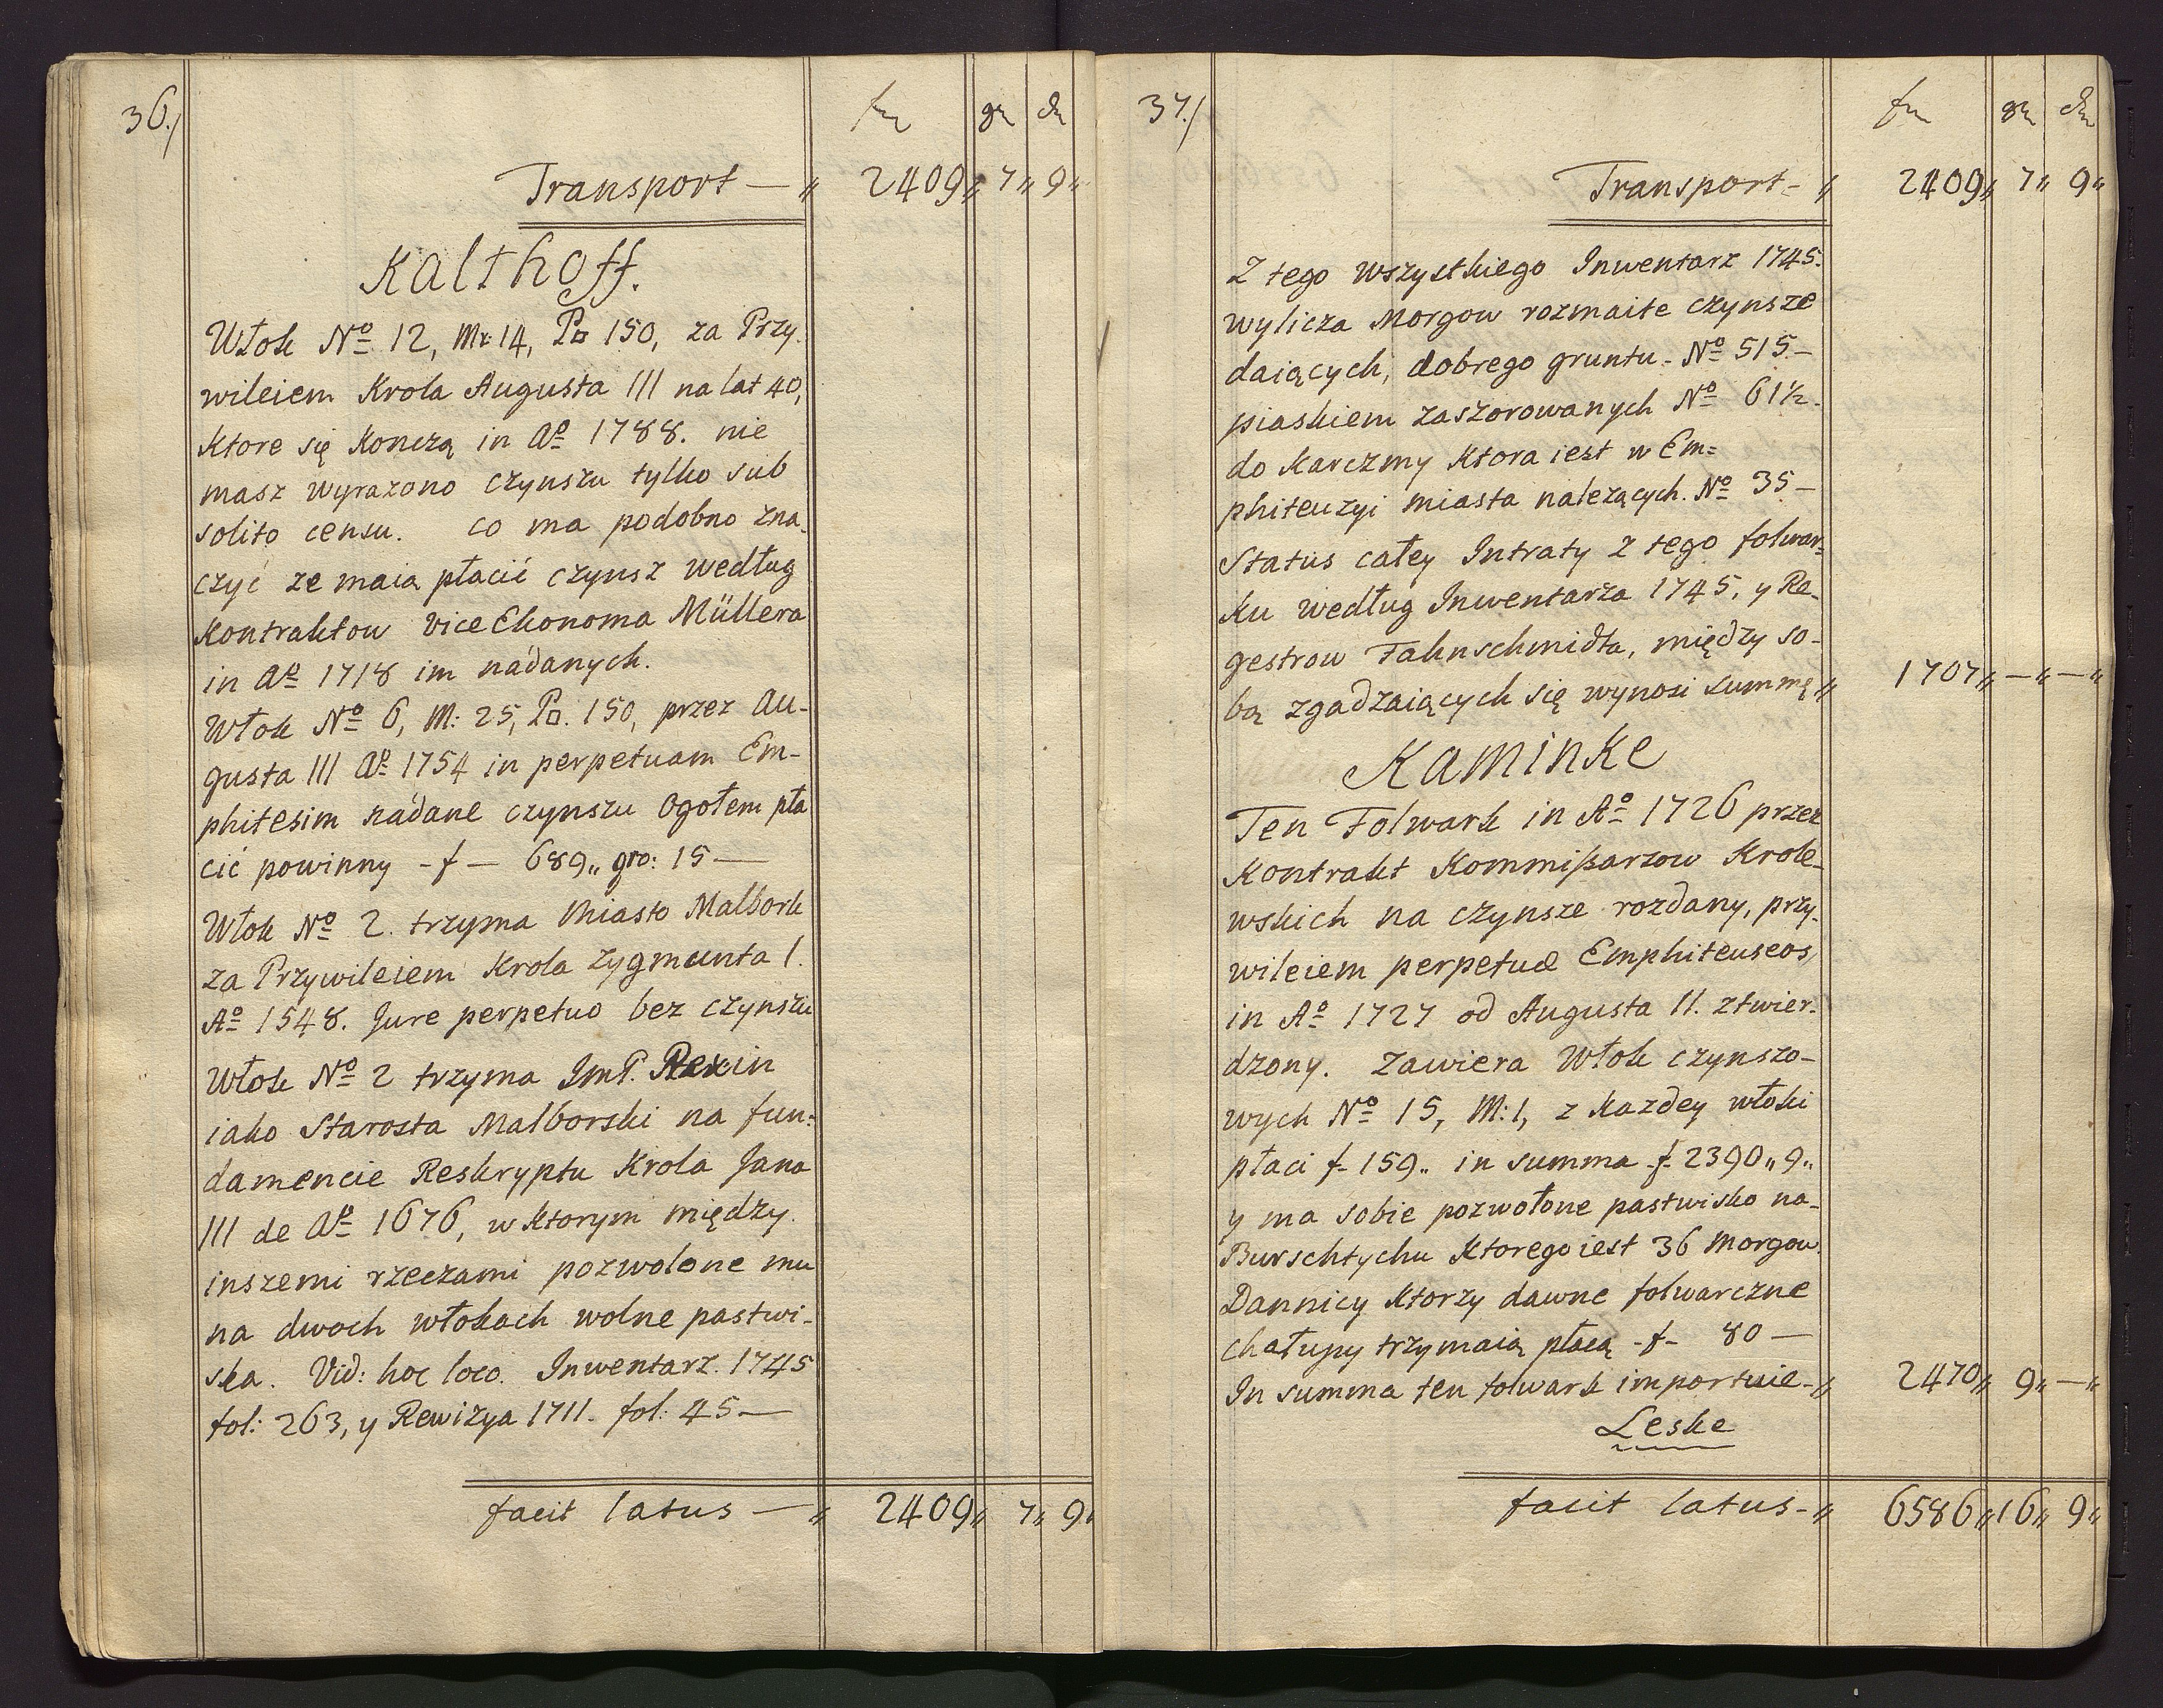 36./
fr gr dr
Transport — „ 2409„ 7„ 9„
Kalthoff.
Włok Nº 12, Mr: 14, P□ 150, za Przy-
wileiem Krola Augusta III na lat 40,
Ktore się Konczą in Aº 1788. nie
masz wyrazono czynszu tylko sub
solito censu. co ma podobno zna-
czyć ze maią płacić czynsz według
Kontraktow Vice Ekonoma Müllera
in Aº 1718 im nadanych.
Włok Nº 6, M: 25, P□. 150, przez Au-
gusta III Aº 1754 in perpetuam Em-
phitesim nadane czynszu Ogołem pła
cić powinny - f — 689„ gro: 15 —
Włok Nº 2. trzyma Miasto Malbork
za Przywileiem Krola Zygmunta I.
Aº 1548. Jure perpetuo bez czynszu
Włok Nº 2 trzyma ImP. Rexin
iako Starosta Malborski na fun=
damencie Reskryptu Krola Jana
III de Aº 1676, w Ktorym między
inszemi rzeczami pozwolone mu
na dwoch włokach wolne pastwi-
ska. Vid: hoc loco. Inwentarz. 1745
fol: 263, y Rewizya 1711. fol: 45 —
facit latus — „ 2409„ 7„ 9„
37./
fr gr dr
Transport - „ 2409„ 7„ 9„
Z tego wszystkiego Inwentarz 1745.
wylicza Morgow rozmaite czynsze
daiących, dobrego gruntu - Nº 515 —
piaskiem zaszorowanych Nº 61½.
do Karczmy Ktora iest w Em=
phiteuzyi miasta nalezących. Nº 35 —
Status całey Intraty z tego folwar=
ku według Inwentarza 1745, y Re-
gestrow Fahnschmidta, między so-
bą zgadzaiących się wynosi summę „ 1707„ — „ — „
Kaminke
Ten Folwark in Aº 1726 przez
Kontrakt Kommißarzow Krole-
wskich na czynsze rozdany, przy-
wileiem perpetuæ Emphiteuseos,
in Aº 1727 od Augusta II. ztwier-
dzony. Zawiera Włok czynszo-
wych Nº 15, M: 1, z Kazdey włoki
płaci f- 159„ in summa -f- 2390„ 9„
y ma sobie pozwołone pastwisko na-
Burschtychu Ktorego iest 36 Morgow.
Dannicy Ktorzy dawne folwarczne
chałupy trzymaią płacą -f- 80 —
In summa ten folwark importuie - „ 2470„ 9„ — „
Leske
facit latus - „ 6586„ 16„ 9„